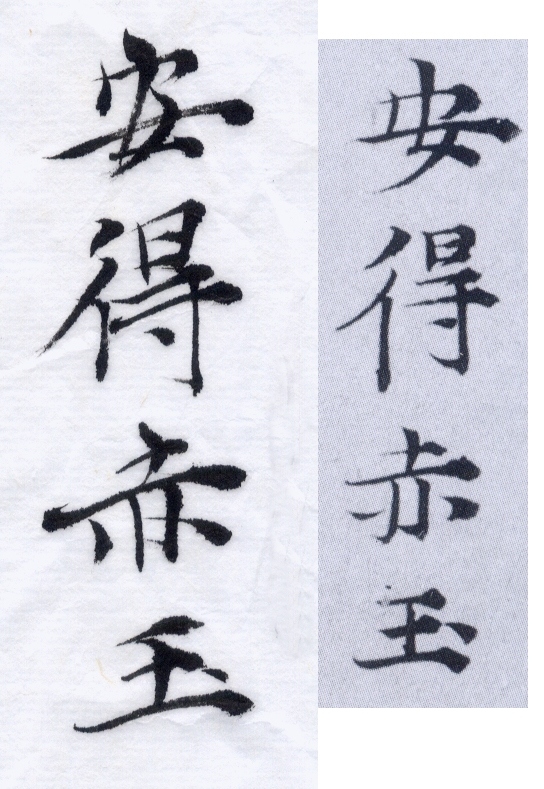 安得赤玉
安得赤玉